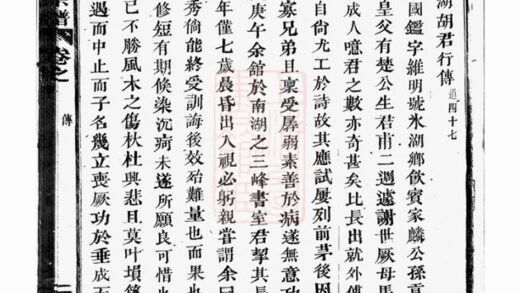 湖胡君行傳 道四十七
國鑑字維明號氷湖鄉飲賓家麟公孫貢
皇父有楚公生君甫二週遽謝世厥母馬
成人噫君之數亦奇甚矣比長出就外傅
自尙尤工於詩故其應試屢列前茅後因
寡兄弟且稟受孱弱素善於病遂無意功
庚午余館於南湖之三峰書室君挈其長
年僅七歲晨昏出入視必躬親嘗謂余曰
秀倘能終受訓誨後效殆難量也而果也
修短有期候染沉疴未遂所願良可惜也
已不勝風木之傷杕杜興悲且莫叶塤篪
遇而中止而子名幾立喪厥功於垂成
譜 卷之 傳